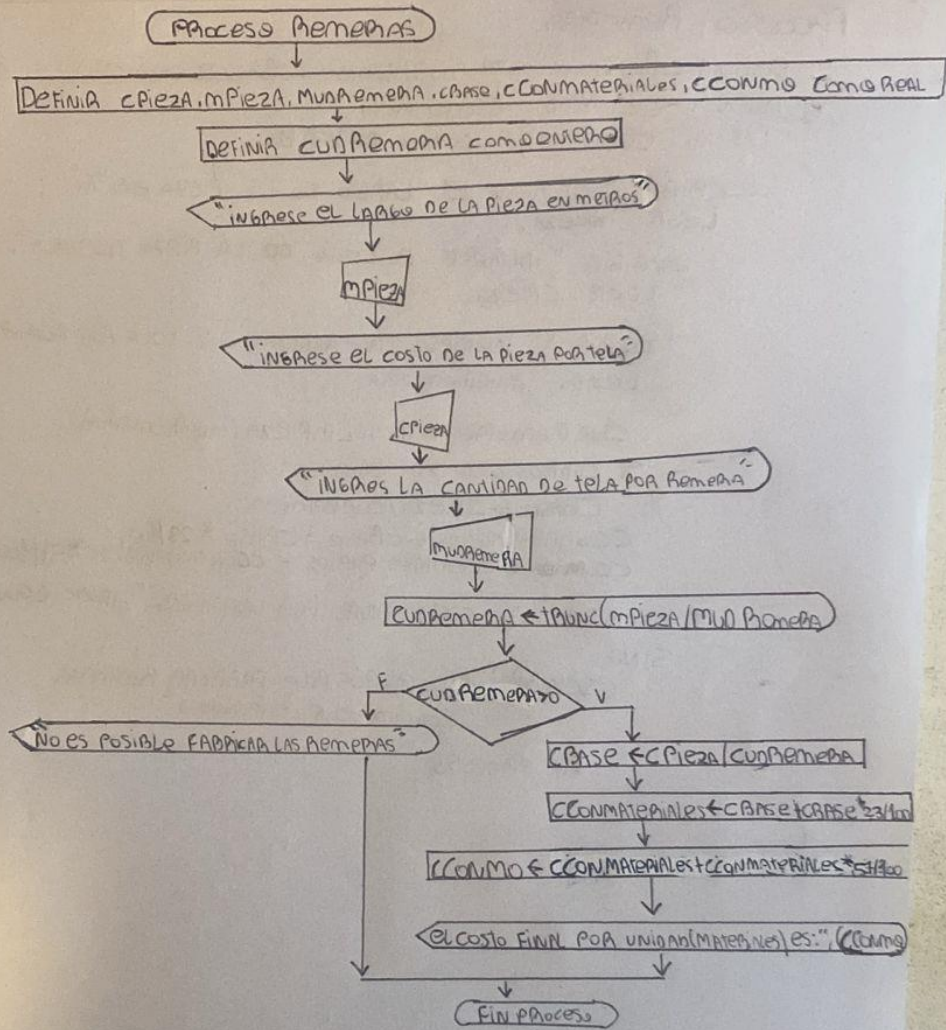 PROCESO REMERAS
DEFINIR CPIEZA, MPIEZA, MUDREMERA, CBASE, CCONMATERIALES, CCONMO COMO REAL
DEFINIR CUDREMERA COMO ENTERO
"INGRESE EL LARGO DE LA PIEZA EN METROS"
MPIEZA
"INGRESE EL COSTO DE LA PIEZA POR TELA"
CPIEZA
"INGRES LA CANTIDAD DE TELA POR REMERA"
MUDREMERA
CUDREMERA ← TRUNC(MPIEZA/MUDREMERA
CUDREMERA>0
F
V
"NO ES POSIBLE FABRICAR LAS REMERAS"
CBASE ← CPIEZA/CUDREMERA
CCONMATERIALES ← CBASE+CBASE*23/100
CCONMO ← CCONMATERIALES+CCONMATERIALES*57/100
EL COSTO FINAL POR UNIDAD(MATERIALES) ES:", CCONMO
FIN PROCESO